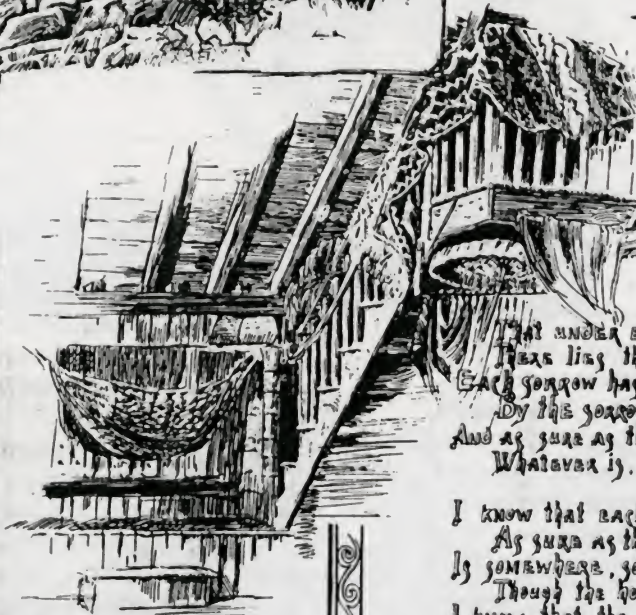 That under e
There lies th
Each sorrow has
By the sorro
And as sure as t
Whatever is,
I know that eac
As sure as th
Is somewhere, so
Though the h